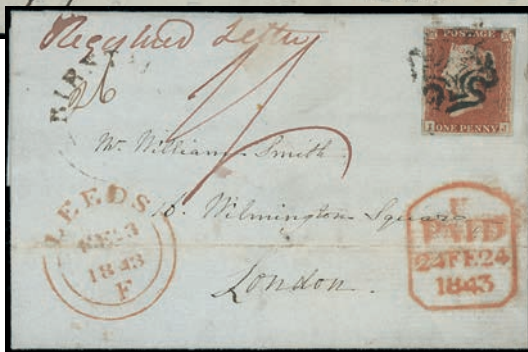 Registered Letter
26
POSTAGE
ONE PENNY
Mr. William Smith
16. Wilmington Square
London.
LEEDS
FE 23
1843
F
PAID
24 FE 24
1843